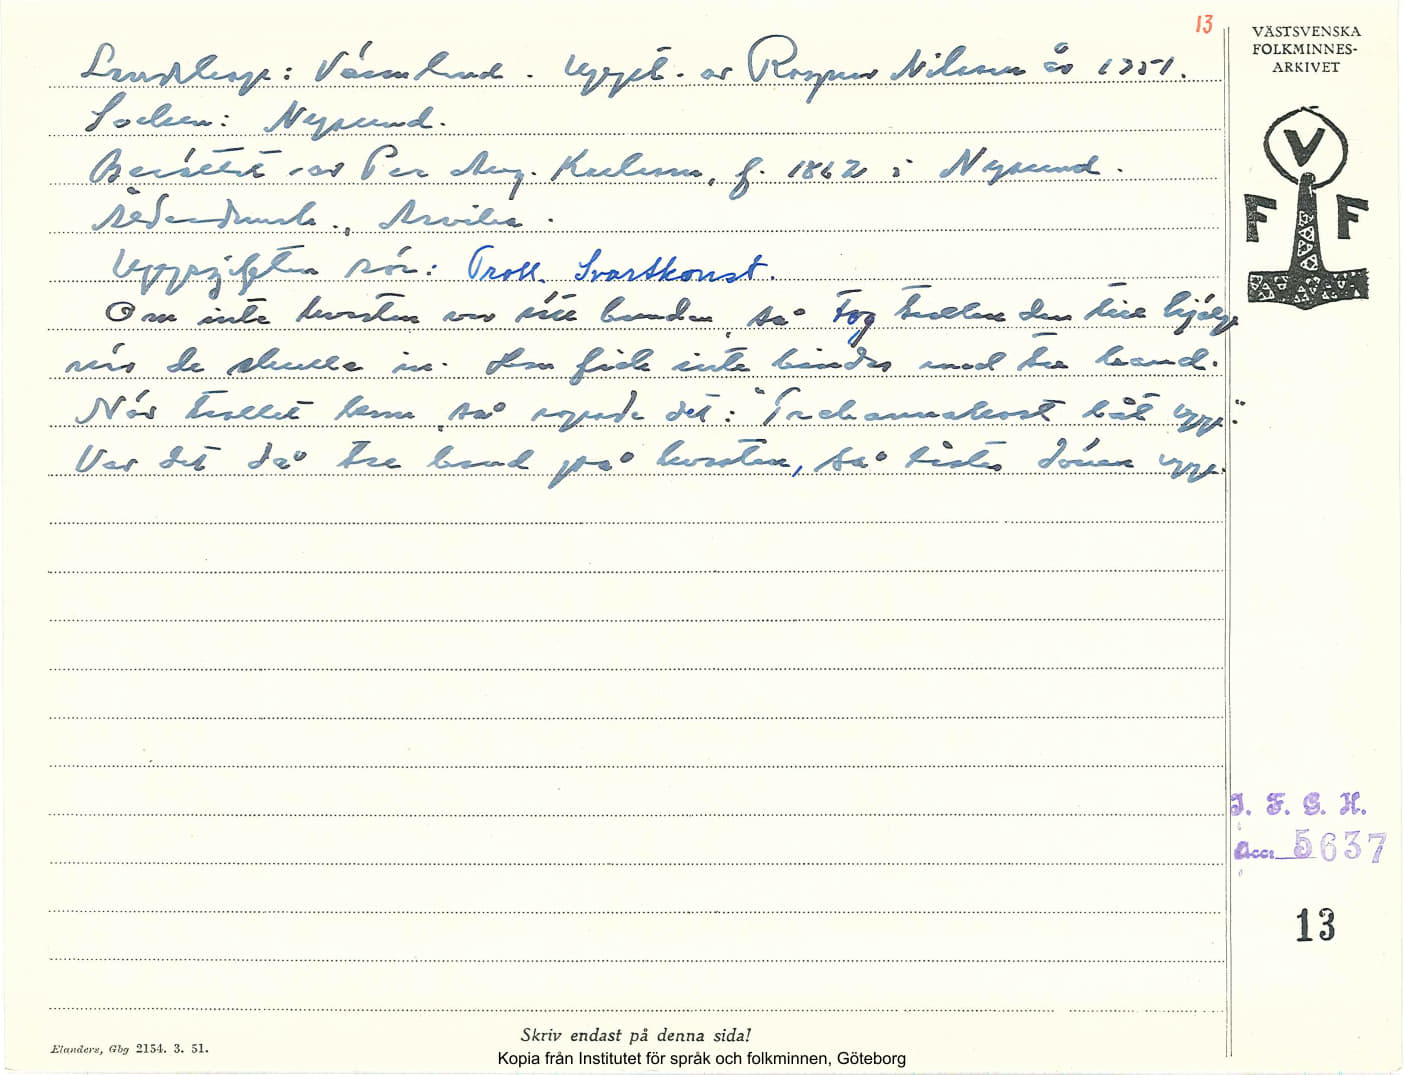 13
VÄSTSVENSKA
FOLKMINNES-
ARKIVET
V
F F
Landskap: Värmland. Uppt. av Ragnar Nilsson år 1951.
Socken: Nysund.
Berättat av Per Aug. Karlsson, f. 1862 i Nysund.
Ålderdomsh., Arvika.
Uppgiften rör: Troll. Svartkonst.
Om inte kvasten var rätt bunden, så tog trollen den till hjälp
när de skulle in. Den fick inte bindas med tre band.
När trollet kom, så ropade det: "Trebannakvast låt upp".
Var det då tre band på kvasten, så lästes dörren upp.
I. F. G. H.
Acc. 5637
13
Skriv endast på denna sida!
Elanders, Gbg 2154. 3. 51.
Kopia från Institutet för språk och folkminnen, Göteborg